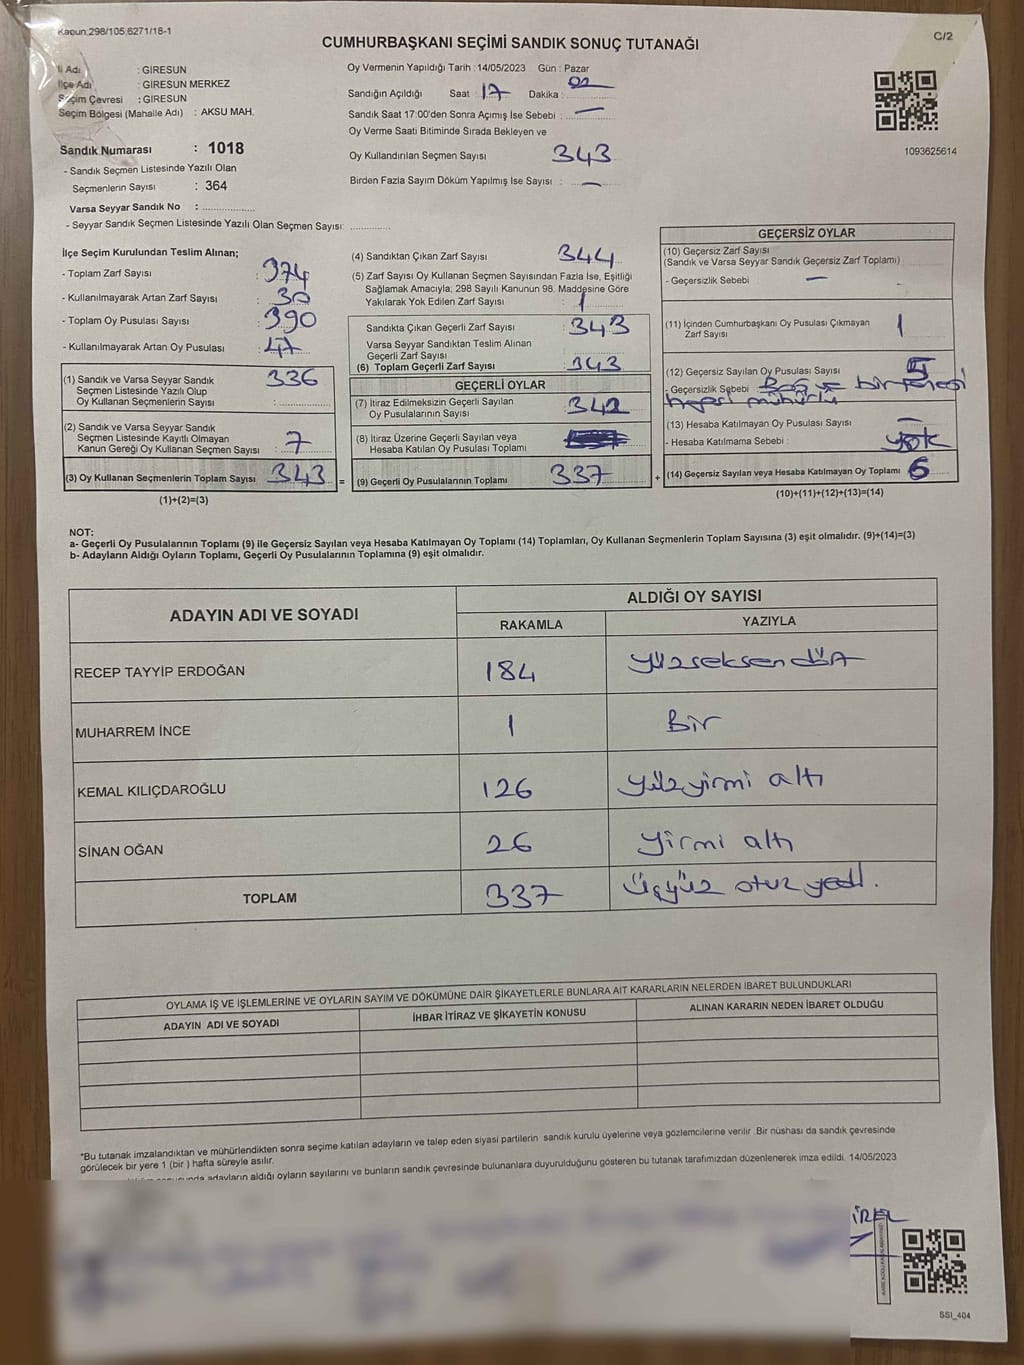 Kanun:298/105,6271/18-1
C/2
CUMHURBAŞKANI SEÇİMİ SANDIK SONUÇ TUTANAĞI
İl Adı : GİRESUN
İlçe Adı : GİRESUN MERKEZ
Seçim Çevresi : GİRESUN
Seçim Bölgesi (Mahalle Adı) : AKSU MAH.
Sandık Numarası : 1018
- Sandık Seçmen Listesinde Yazılı Olan
Seçmenlerin Sayısı : 364
Varsa Seyyar Sandık No : ..................
- Seyyar Sandık Seçmen Listesinde Yazılı Olan Seçmen Sayısı: ..............
Oy Vermenin Yapıldığı Tarih : 14/05/2023 Gün : Pazar
Sandığın Açıldığı Saat : 17 Dakika : 02
Sandık Saat 17:00'den Sonra Açımış İse Sebebi : —
Oy Verme Saati Bitiminde Sırada Bekleyen ve
Oy Kullandırılan Seçmen Sayısı 343
Birden Fazla Sayım Döküm Yapılmış İse Sayısı : —
1093625614
İlçe Seçim Kurulundan Teslim Alınan;
- Toplam Zarf Sayısı : 374
- Kullanılmayarak Artan Zarf Sayısı : 30
- Toplam Oy Pusulası Sayısı : 390
- Kullanılmayarak Artan Oy Pusulası : 47
(1) Sandık ve Varsa Seyyar Sandık 336
Seçmen Listesinde Yazılı Olup
Oy Kullanan Seçmenlerin Sayısı :
(2) Sandık ve Varsa Seyyar Sandık
Seçmen Listesinde Kayıtlı Olmayan
Kanun Gereği Oy Kullanan Seçmen Sayısı : 7
(3) Oy Kullanan Seçmenlerin Toplam Sayısı 343 =
(1)+(2)=(3)
(4) Sandıktan Çıkan Zarf Sayısı 344
(5) Zarf Sayısı Oy Kullanan Seçmen Sayısından Fazla İse, Eşitliği
Sağlamak Amacıyla; 298 Sayılı Kanunun 98. Maddesine Göre
Yakılarak Yok Edilen Zarf Sayısı : 1
Sandıkta Çıkan Geçerli Zarf Sayısı : 343
Varsa Seyyar Sandıktan Teslim Alınan
Geçerli Zarf Sayısı
(6) Toplam Geçerli Zarf Sayısı : 343
GEÇERLİ OYLAR
(7) İtiraz Edilmeksizin Geçerli Sayılan
Oy Pusulalarının Sayısı : 342
(8) İtiraz Üzerine Geçerli Sayılan veya
Hesaba Katılan Oy Pusulası Toplamı
(9) Geçerli Oy Pusulalarının Toplamı 337 +
GEÇERSİZ OYLAR
(10) Geçersiz Zarf Sayısı
(Sandık ve Varsa Seyyar Sandık Geçersiz Zarf Toplamı)
- Geçersizlik Sebebi —
(11) İçinden Cumhurbaşkanı Oy Pusulası Çıkmayan
Zarf Sayısı 1
(12) Geçersiz Sayılan Oy Pusulası Sayısı 5
- Geçersizlik Sebebi Boş ve birtanesi
hepsi mühürlü
(13) Hesaba Katılmayan Oy Pusulası Sayısı : —
- Hesaba Katılmama Sebebi : yok
(14) Geçersiz Sayılan veya Hesaba Katılmayan Oy Toplamı 6
(10)+(11)+(12)+(13)=(14)
NOT:
a- Geçerli Oy Pusulalarının Toplamı (9) ile Geçersiz Sayılan veya Hesaba Katılmayan Oy Toplamı (14) Toplamları, Oy Kullanan Seçmenlerin Toplam Sayısına (3) eşit olmalıdır. (9)+(14)=(3)
b- Adayların Aldığı Oyların Toplamı, Geçerli Oy Pusulalarının Toplamına (9) eşit olmalıdır.
ADAYIN ADI VE SOYADI
ALDIĞI OY SAYISI
RAKAMLA YAZIYLA
RECEP TAYYİP ERDOĞAN 184 yüzseksen dört
MUHARREM İNCE 1 Bir
KEMAL KILIÇDAROĞLU 126 yüzyirmi altı
SİNAN OĞAN 26 yirmi altı
TOPLAM 337 üçyüz otuz yedi.
OYLAMA İŞ VE İŞLEMLERİNE VE OYLARIN SAYIM VE DÖKÜMÜNE DAİR ŞİKAYETLERLE BUNLARA AİT KARARLARIN NELERDEN İBARET BULUNDUKLARI
ADAYIN ADI VE SOYADI İHBAR İTİRAZ VE ŞİKAYETİN KONUSU ALINAN KARARIN NEDEN İBARET OLDUĞU
*Bu tutanak imzalandıktan ve mühürlendikten sonra seçime katılan adayların ve talep eden siyasi partilerin sandık kurulu üyelerine veya gözlemcilerine verilir .Bir nüshası da sandık çevresinde
görülecek bir yere 1 (bir ) hafta süreyle asılır.
adayların aldığı oyların sayılarını ve bunların sandık çevresinde bulunanlara duyurulduğunu gösteren bu tutanak tarafımızdan düzenlenerek imza edildi. 14/05/2023
İREL
SSI_404